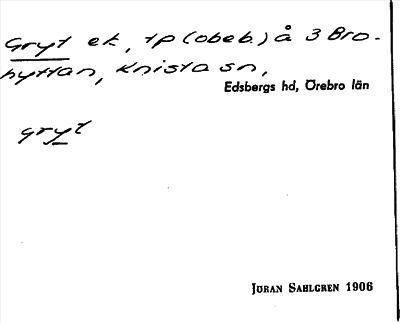 Gryt ek, tp (obeb.) å 3 Bro-
hyttan, Knista sn,
Edsbergs hd, Örebro län
gryt
Jöran Sahlgren 1906